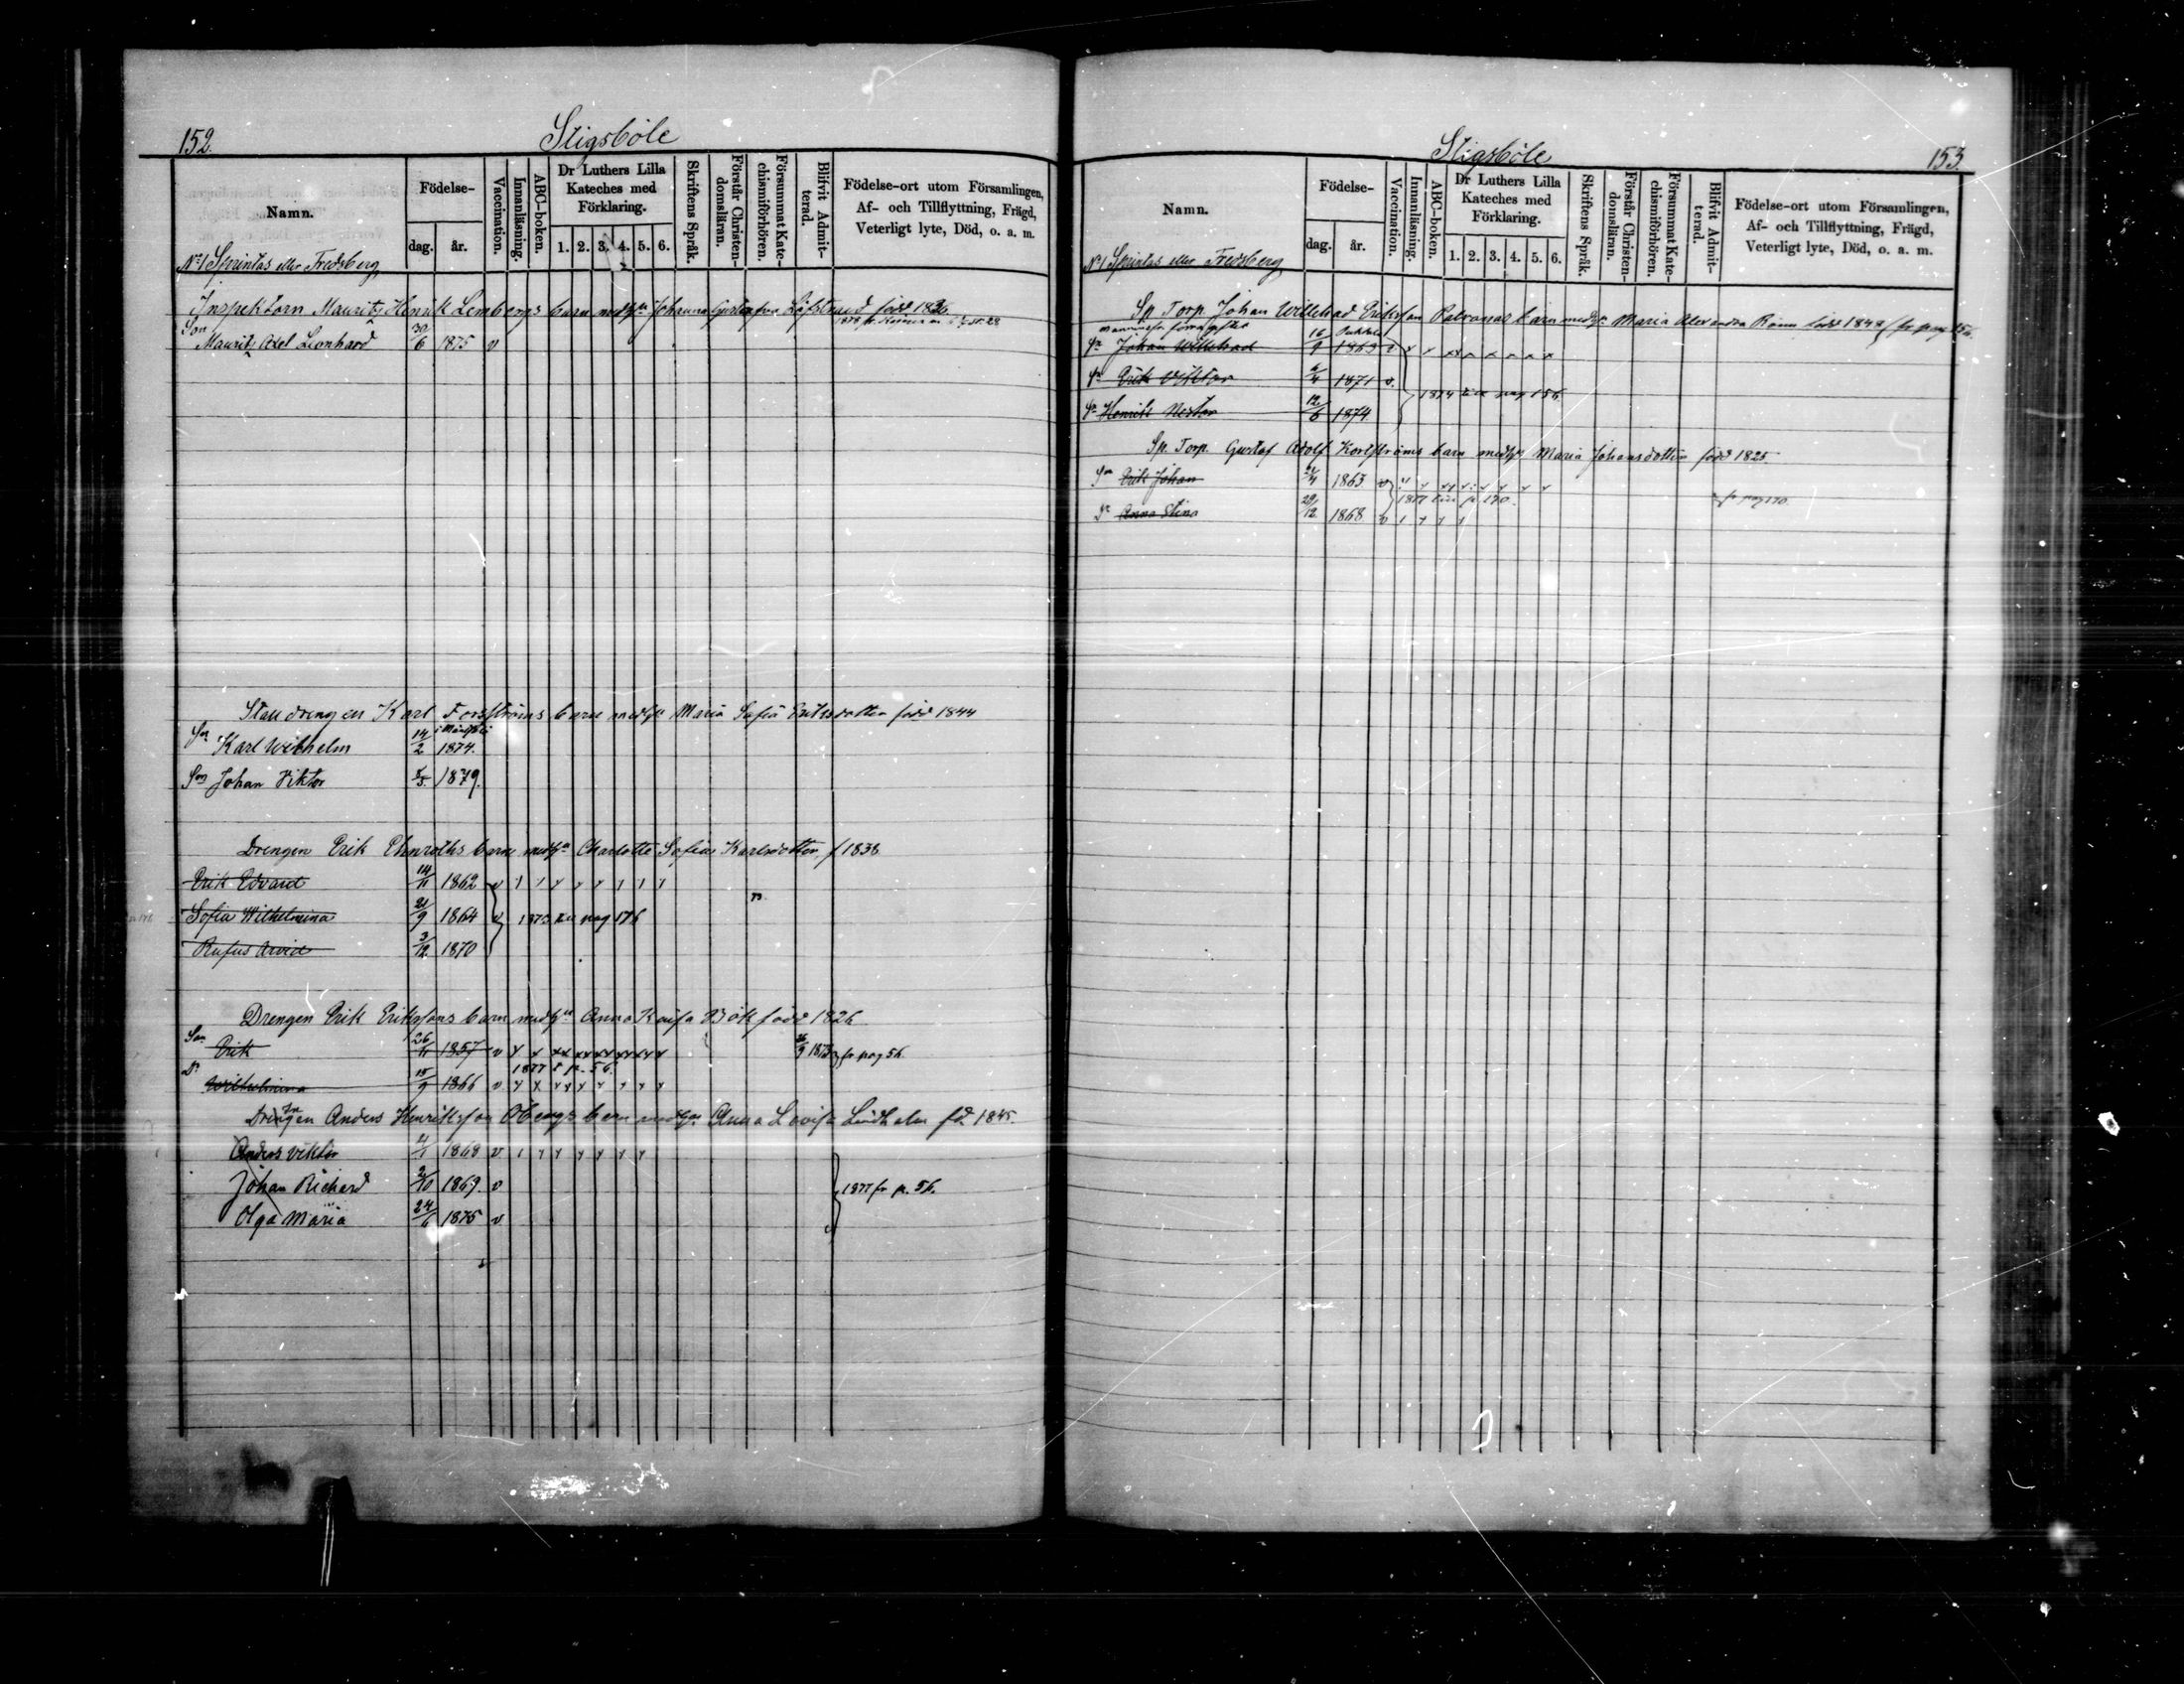 152.
Stigsböle
Namn.
Födelse-
dag.
år.
Vaccination.
Innanläsning.
ABC-boken.
Dr Luthers Lilla
Kateches med
Förklaring.
1. 2. 3. 4. 5. 6.
Skriftens Språk.
Förstår Christen-
domsläran.
Försummat Kate-
chismiförhören.
Blifvit Admit-
terad.
Födelse-ort utom Församlingen,
Af- och Tillflyttning, Frägd,
Veterligt lyte, Död, o. a. m.
No 1 Sprintas eller Fredsberg
Inspektorn Mauritz Henrik Lembergs barn med hu Johanna Löfstrand född 1826
Son Mauritz Axel Leonhard 30/6 1875 v
Stalldrengen Karl Forsströms barn medhu Maria Sofia Eriksdotter född 1844
Son Karl Wilhelm 14/2 1874.
Son Johan Viktor 1879.
Drengen Erik Ehnroths barn medhu Charlotte Sofia Karlsdotter f 1838
Erik Edvard 14/11 1862 v
Sofia Wilhelmina 21/9 1864 v 1873 pag 176
Rufus Arvid 3/12 1870
Drengen Erik Erikssons barn medhu Anna Kaisa Bök född 1826
Son Erik 26/11 1857 v 1873 fr pag 56.
1877 t p. 56.
Dr Wilhelmina 15/9 1866 v
Drengen Anders Henriksson Öbergs barn medhu Anna Lovisa Lindholm fd 1845.
Anders Viktor 1868 v
Johan Richard 2/10 1869. v 1877 fr p. 56.
Olga Maria 24/6 1875 v
Stigsböle
153.
Namn.
Födelse-
dag.
år.
Vaccination.
Innanläsning.
ABC-boken.
Dr Luthers Lilla
Kateches med
Förklaring.
1. 2. 3. 4. 5. 6.
Skriftens Språk.
Förstår Christen-
domsläran.
Försummat Kate-
chismiförhören.
Blifvit Admit-
terad.
Födelse-ort utom Församlingen,
Af- och Tillflyttning, Frägd,
Veterligt lyte, Död, o. a. m.
No 1 Sprintas eller Fredsberg
Sp Torp. Johan Willehad Eriksson barn medhu Maria Alexandra Rönn född 1848
Sn Johan Willehad 16/9 1863 v
Sn Erik Viktor 1871 v.
1874 pag 156
Sn Henrik Nestor 12/6 1874
Sp. Torp. Gustaf Adolf Korsströms barn medhu Maria Johansdotter född 1825
Sn Erik Johan 1863 v
1877 p. 170. fr pag 170.
Dr Anna Stina 29/12 1868 v